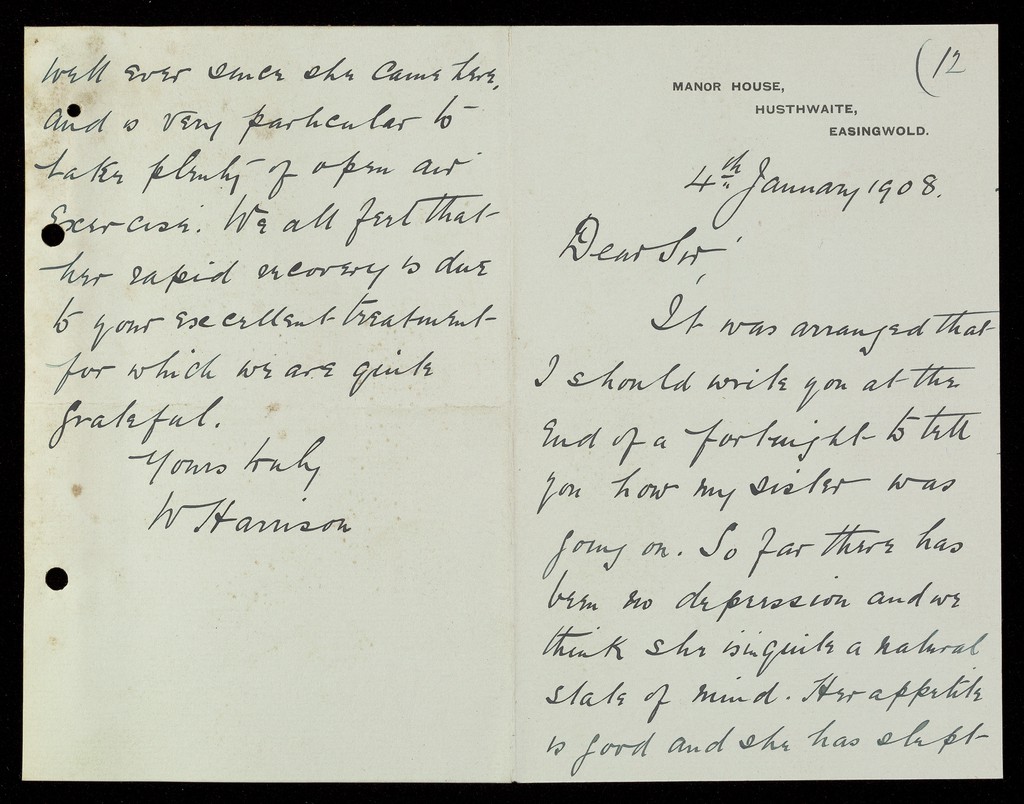 (12
MANOR HOUSE,
HUSTHWAITE,
EASINGWOLD.
4th January 1908.
Dear Sir,
It was arranged that
I should write you at the
end of a fortnight to tell
you how my sister was
going on. So far there has
been no depression and we
think she is in quite a natural
state of mind. Her appetite
is good and she has slept
well ever since she came here,
and is very particular to
take plenty of open air
exercise. We all feel that
her rapid recovery is due
to your excellent treatment
for which we are quite
grateful.
Yours truly
W Harrison